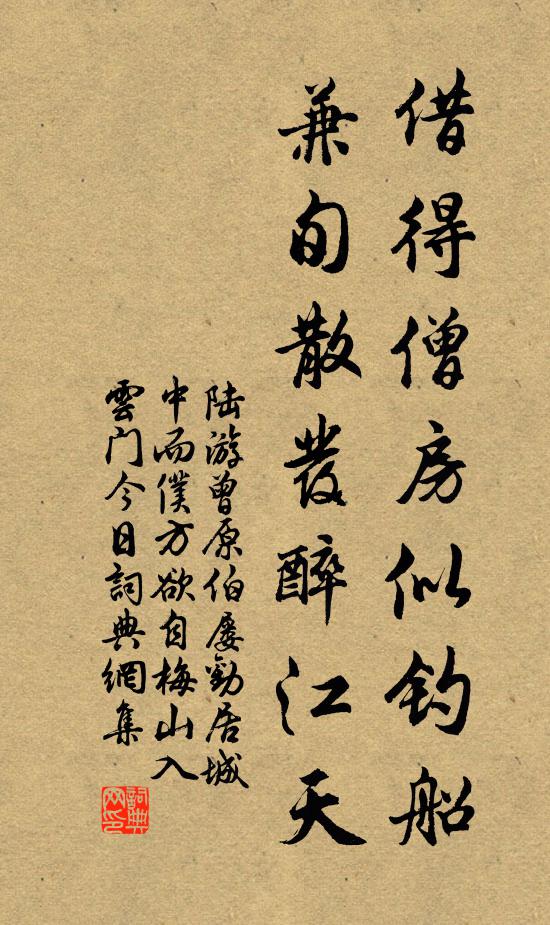 借得僧房似钓船
兼旬散发醉江天
陆游曾原伯屡劝居城
中而僕方欲自梅山入
雲门今日詞典網集
詞典
网印